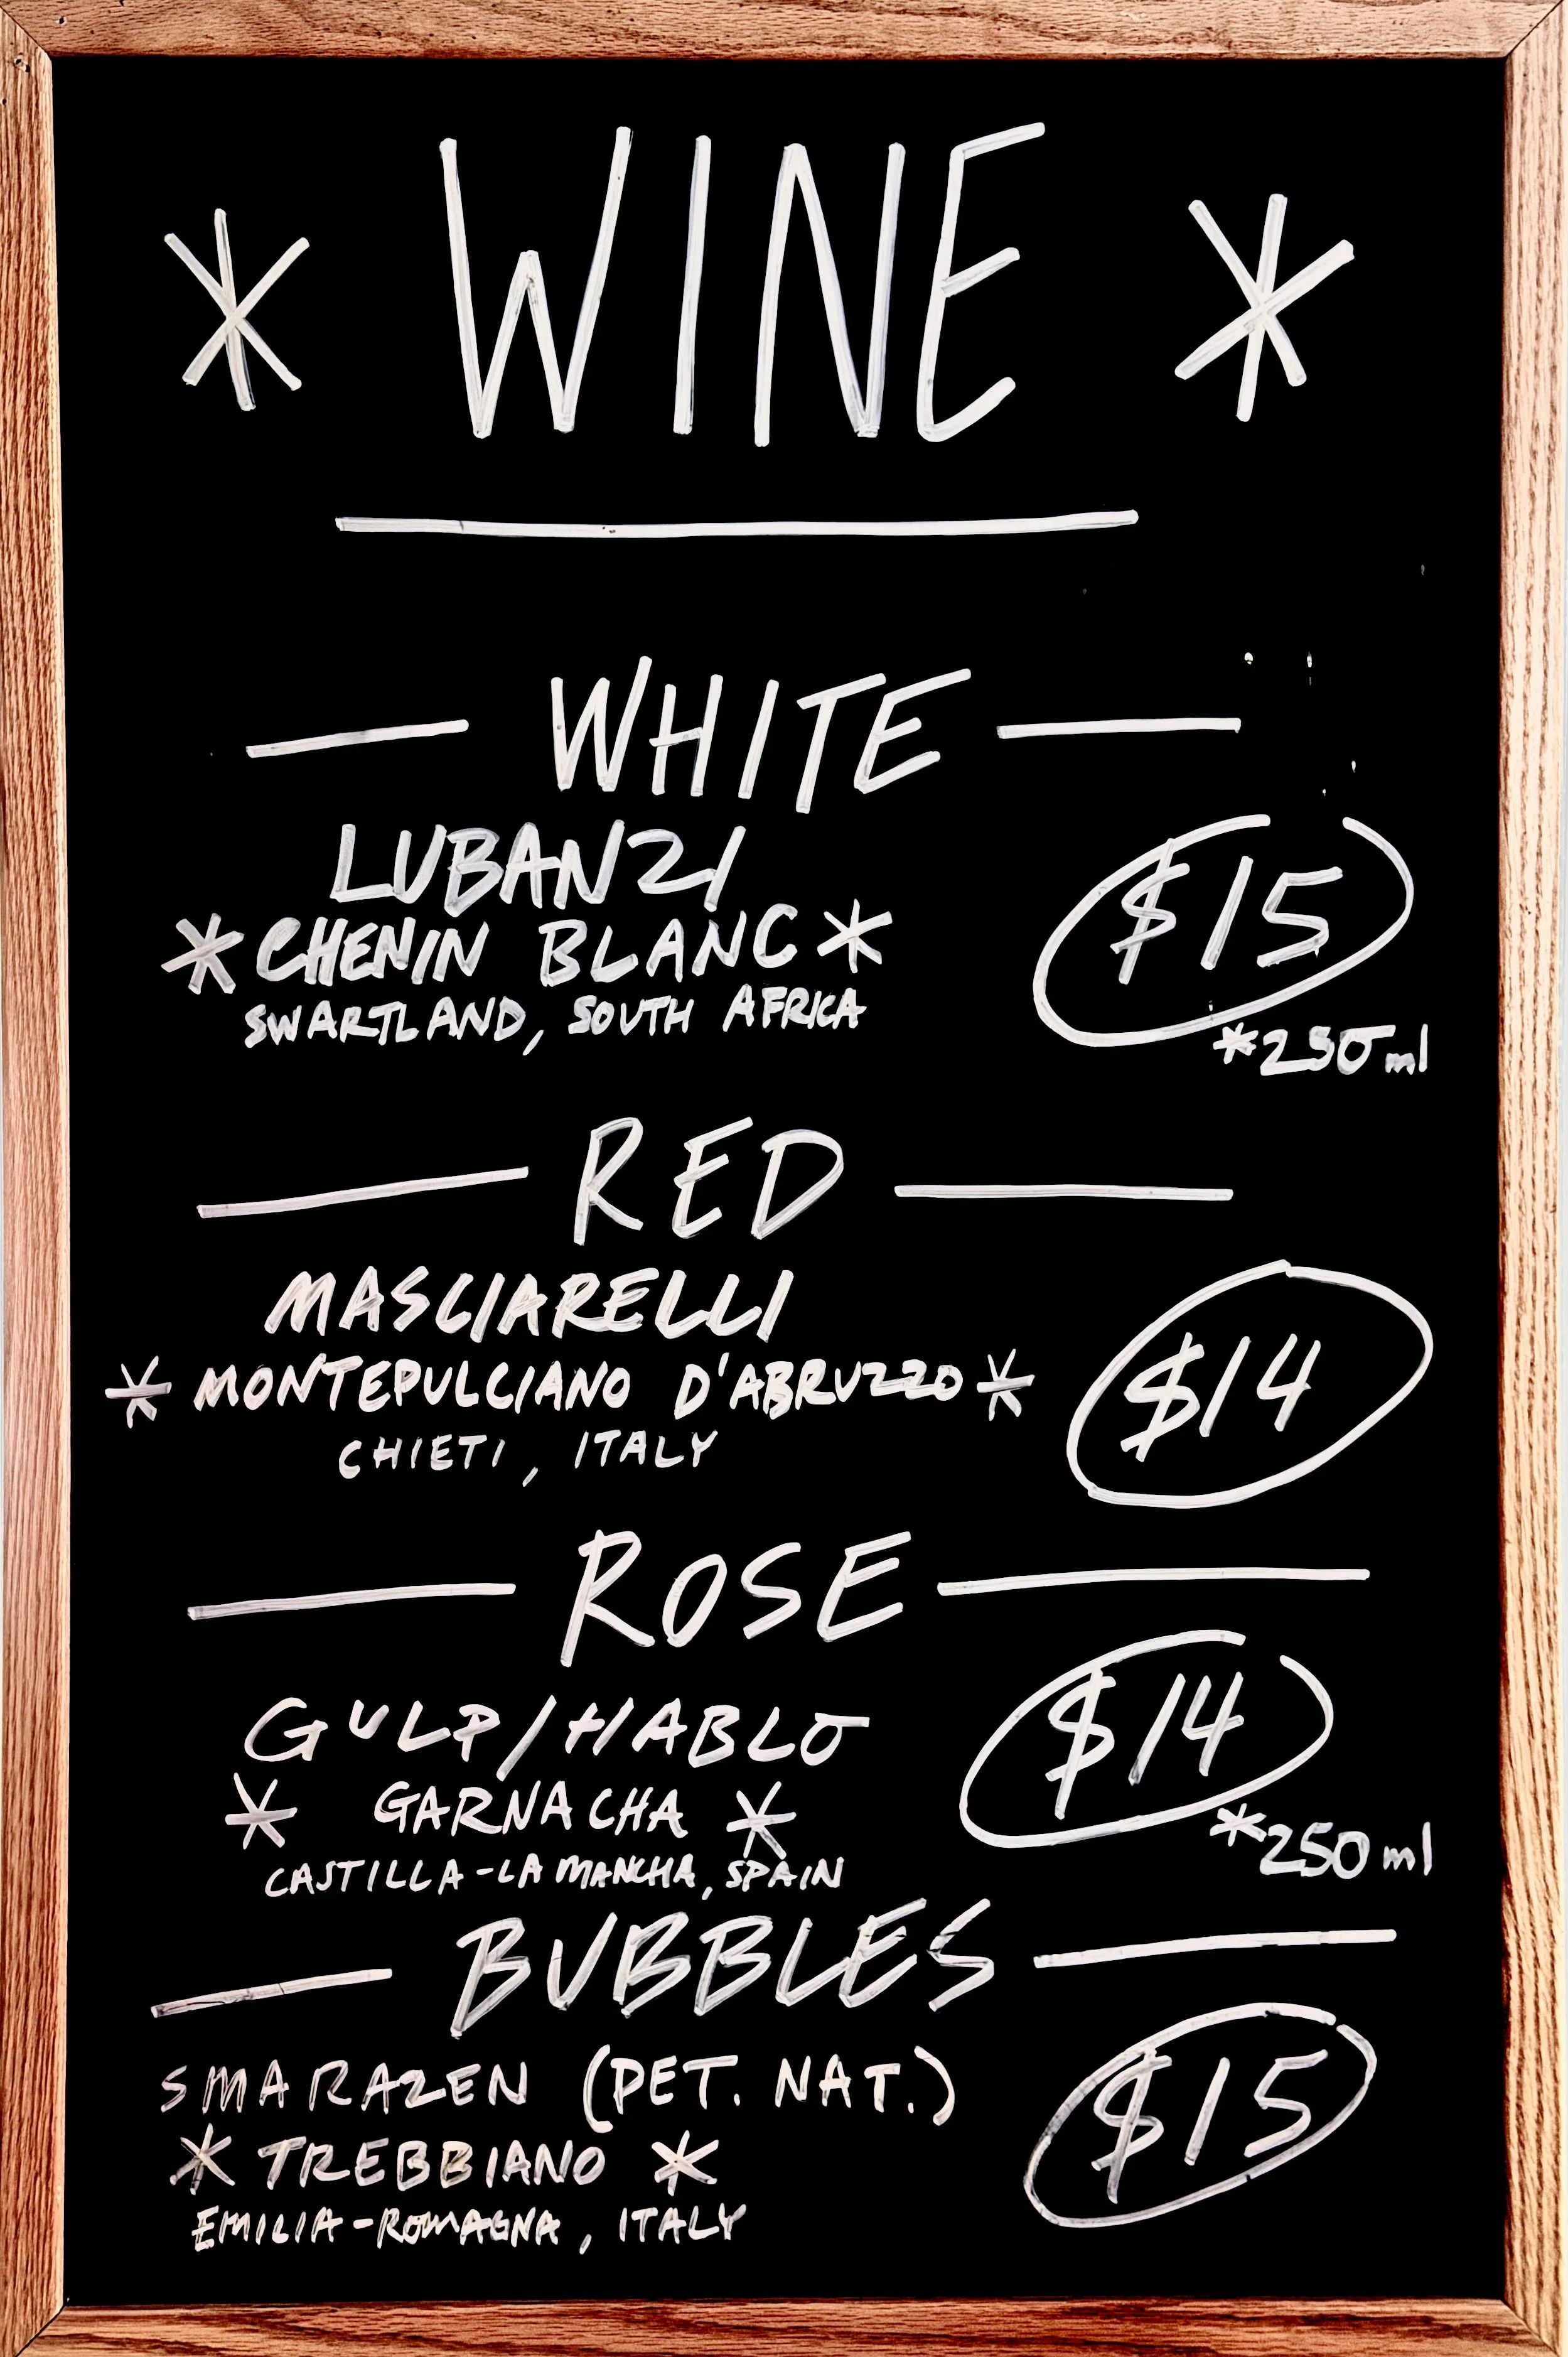 * WINE *
— WHITE —
LUBANZI
* CHENIN BLANC *
SWARTLAND, SOUTH AFRICA
$15
*250ml
— RED —
MASCIARELLI
* MONTEPULCIANO D'ABRUZZO *
CHIETI, ITALY
$14
— ROSE —
GULP/HABLO
* GARNACHA *
CASTILLA-LA MANCHA, SPAIN
$14
*250ml
— BUBBLES —
SMARAZEN (PET. NAT.)
* TREBBIANO *
EMILIA-ROMAGNA, ITALY
$15